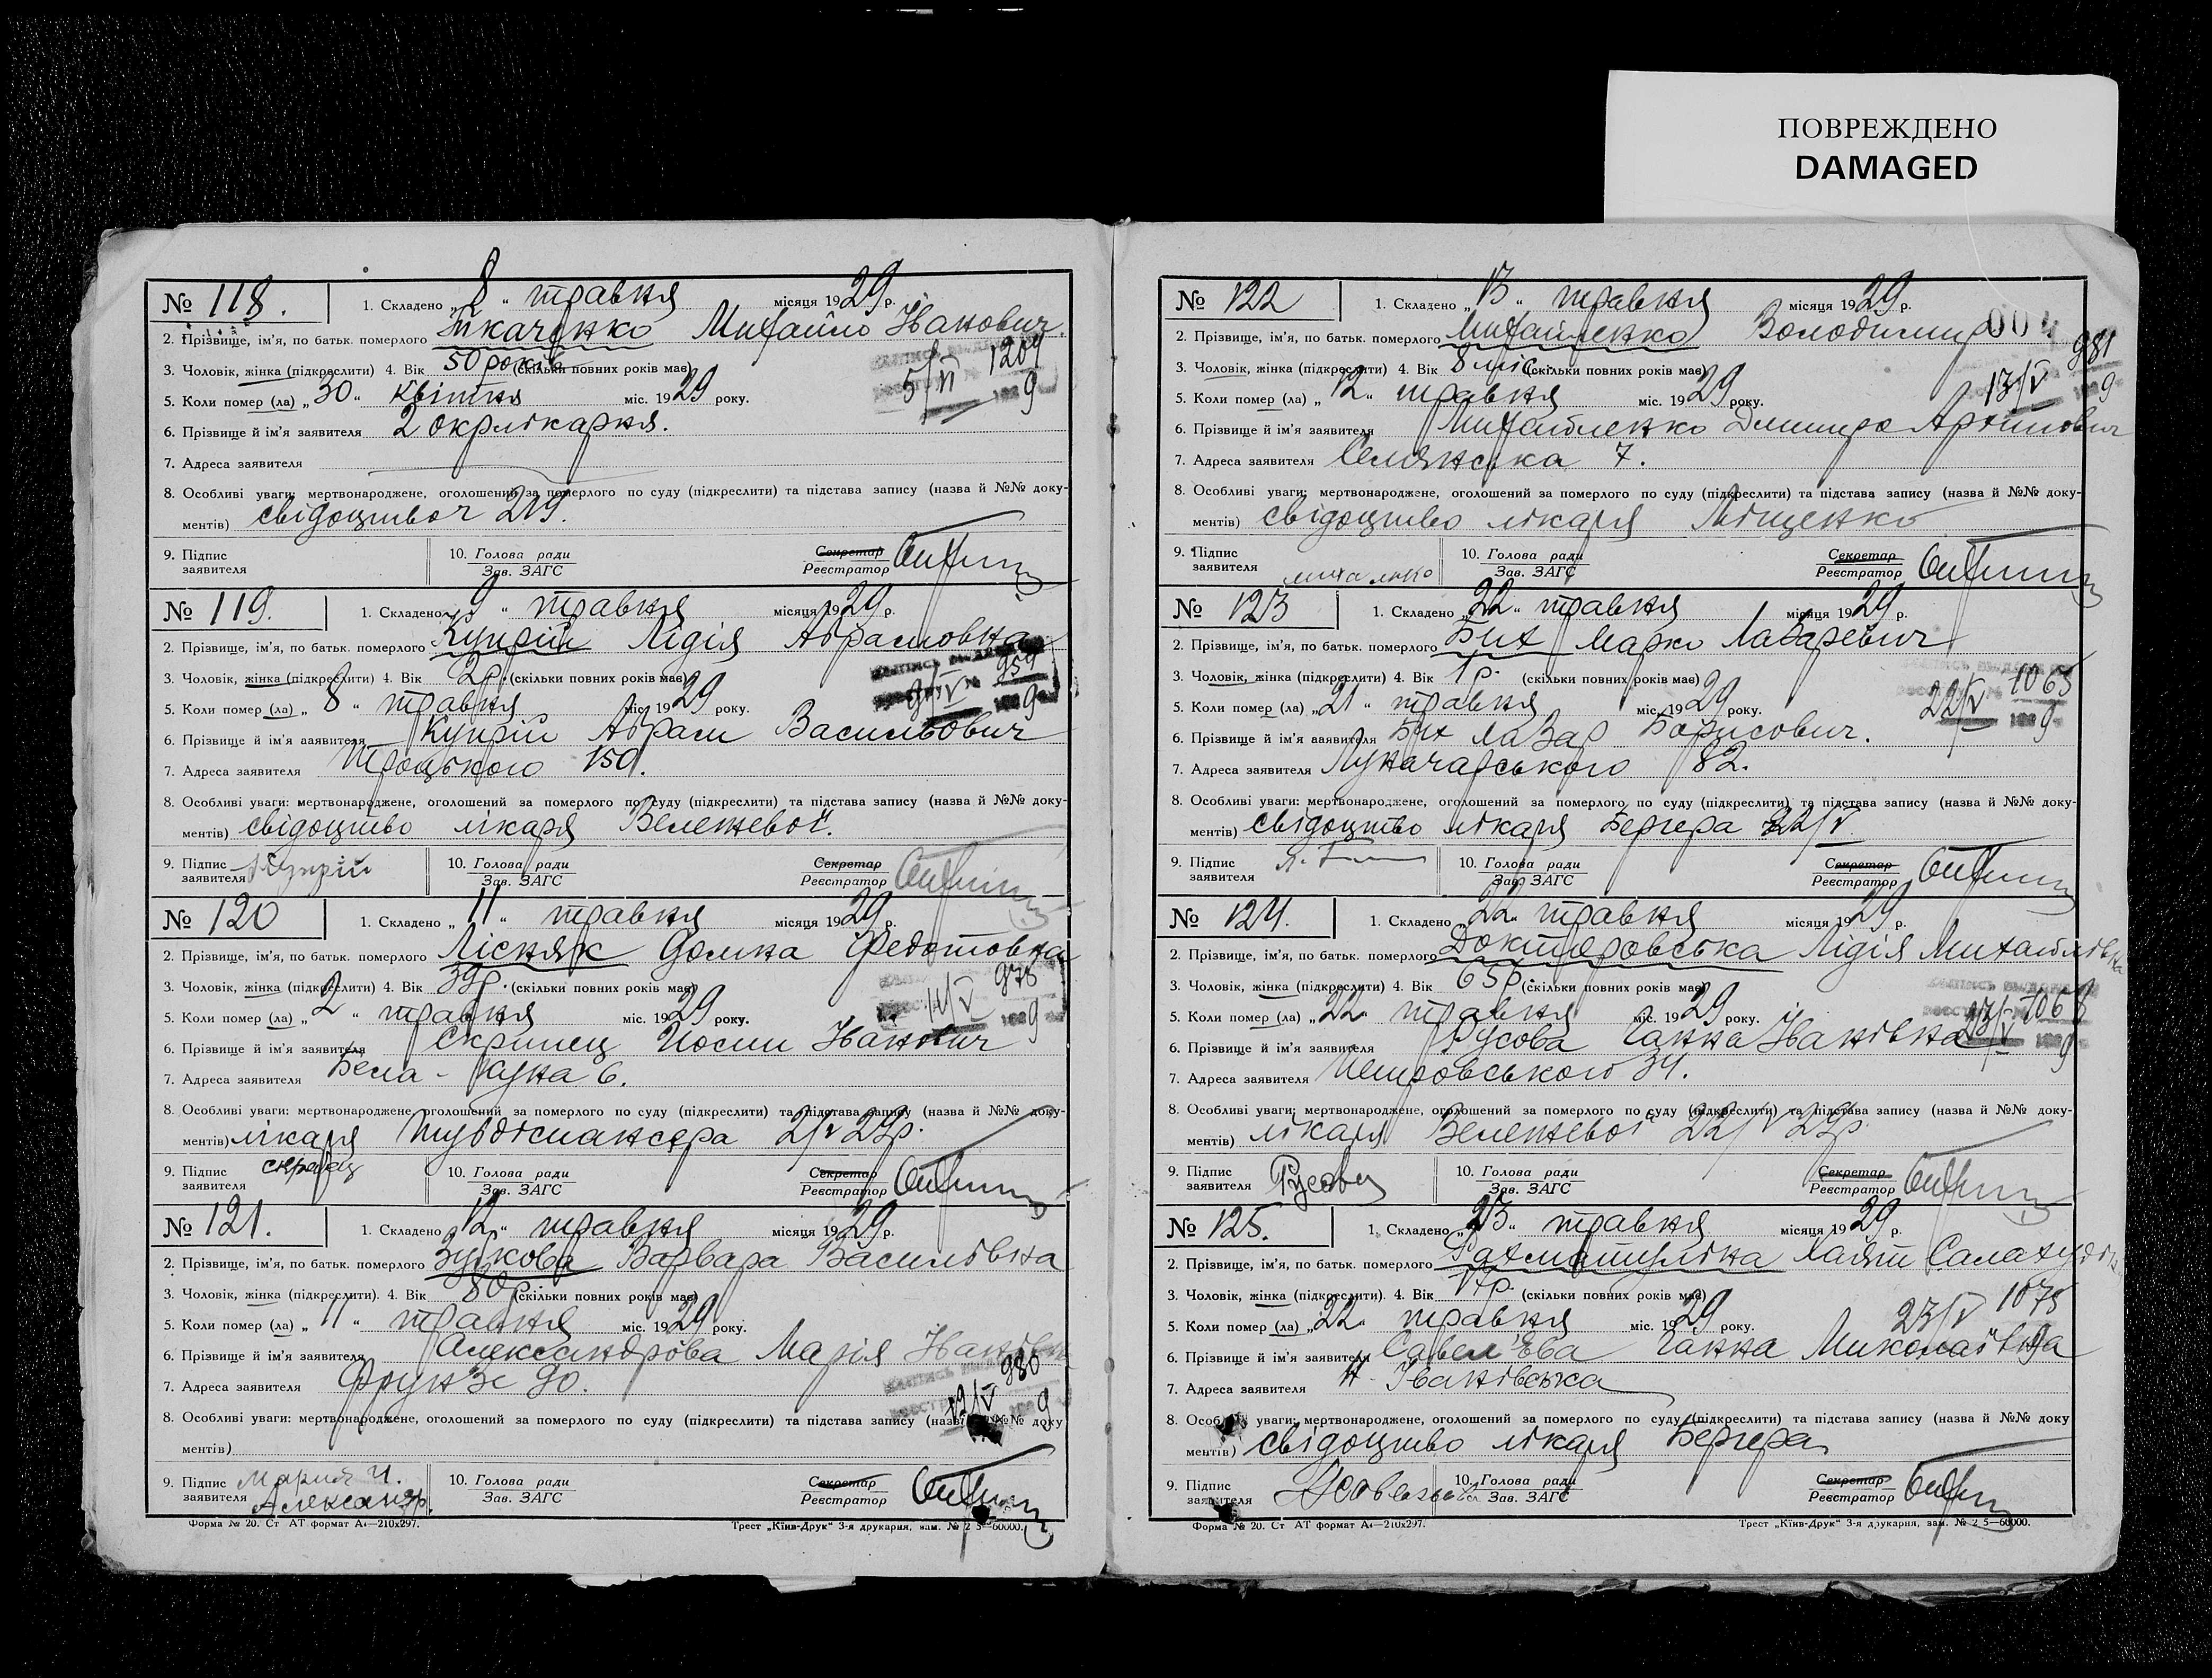 ПОВРЕЖДЕНО
DAMAGED
№ 118. 1. Складено „8“ травня місяця 1929 р.
2. Прізвище, ім'я, по батьк. померлого Ткаченко Михайло Іванович
3. Чоловік, жінка (підкреслити) 4. Вік 50 років (скільки повних років має)
5/VI 1209
5. Коли помер (ла) „30“ квітня міс. 1929 року.
9
6. Прізвище й ім'я заявителя 2 окрлікарня.
7. Адреса заявителя
8. Особливі уваги: мертвонароджене, оголошений за померлого по суду (підкреслити) та підстава запису (назва й №№ доку-
ментів) свідоцтво ч 219.
9. Підпис заявителя
10. Голова ради Зав. ЗАГС
Секретар Реєстратор
№ 119. 1. Складено „9“ травня місяця 1929 р.
2. Прізвище, ім'я, по батьк. померлого Купрій Лідія Абрамовна
3. Чоловік, жінка (підкреслити) 4. Вік 2 р. (скільки повних років має)
9/V 959
5. Коли помер (ла) „8“ травня міс. 1929 року.
9
6. Прізвище й ім'я заявителя Купрій Абрам Васильович
7. Адреса заявителя Троцького 150.
8. Особливі уваги: мертвонароджене, оголошений за померлого по суду (підкреслити) та підстава запису (назва й №№ доку-
ментів) свідоцтво лікаря Вележевої.
9. Підпис заявителя Купрій
10. Голова ради Зав. ЗАГС
Секретар Реєстратор
№ 120 1. Складено „11“ травня місяця 1929 р.
2. Прізвище, ім'я, по батьк. померлого Лісняк Домна Федотовна
3. Чоловік, жінка (підкреслити) 4. Вік 39р. (скільки повних років має)
11/V 978
5. Коли помер (ла) „2“ травня міс. 1929 року.
9
6. Прізвище й ім'я заявителя Скрипец Иосип Іванович
7. Адреса заявителя Бела-Куна 6.
8. Особливі уваги: мертвонароджене, оголошений за померлого по суду (підкреслити) та підстава запису (назва й №№ доку-
ментів) лікаря Тубдіспансера 2/V 29р.
9. Підпис заявителя
10. Голова ради Зав. ЗАГС
Секретар Реєстратор
№ 121. 1. Складено „12“ травня місяця 1929 р.
2. Прізвище, ім'я, по батьк. померлого Зуйкова Варвара Василівна
3. Чоловік, жінка (підкреслити). 4. Вік 80 (скільки повних років має)
5. Коли помер (ла) „11“ травня міс. 1929 року.
6. Прізвище й ім'я заявителя Александрова Марія Іванівна
980
7. Адреса заявителя Фрунзе 90.
12/V 9
8. Особливі уваги: мертвонароджене, оголошений за померлого по суду (підкреслити) та підстава запису (назва й №№ доку
ментів)
9. Підпис заявителя Мария И. Александр.
10. Голова ради Зав. ЗАГС
Секретар Реєстратор
Форма № 20. Ст АТ формат А4—210х297. Трест „Київ-Друк“ 3-я друкарня, зам. № 2 5—60000.
№ 122 1. Складено „13“ травня місяця 1929 р.
004
2. Прізвище, ім'я, по батьк. померлого Михайленко Володимир
981
3. Чоловік, жінка (підкреслити) 4. Вік 8 міс. (скільки повних років має)
13/V 9
5. Коли помер (ла) „12“ травня міс. 1929 року.
6. Прізвище й ім'я заявителя Михайленко Дмитро Артемович
7. Адреса заявителя Селянська 7.
8. Особливі уваги: мертвонароджене, оголошений за померлого по суду (підкреслити) та підстава запису (назва й №№ доку-
ментів) свідоцтво лікаря Міщенко
9. Підпис заявителя
10. Голова ради Зав. ЗАГС
Секретар Реєстратор
№ 123 1. Складено „22“ травня місяця 1929 р.
2. Прізвище, ім'я, по батьк. померлого Бих Марко Лазаревич
3. Чоловік, жінка (підкреслити) 4. Вік 1 р. (скільки повних років має)
22/V 1065
5. Коли помер (ла) „21“ травня міс. 1929 року.
9
6. Прізвище й ім'я заявителя Бих Лазар Борисович.
7. Адреса заявителя Луначарського 82.
8. Особливі уваги: мертвонароджене, оголошений за померлого по суду (підкреслити) та підстава запису (назва й №№ доку-
ментів) свідоцтво лікаря Бергера 22/V
9. Підпис заявителя
10. Голова ради Зав. ЗАГС
Секретар Реєстратор
№ 124. 1. Складено „22“ травня місяця 1929 р.
2. Прізвище, ім'я, по батьк. померлого Докторовська Лідія Михайлівна
3. Чоловік, жінка (підкреслити) 4. Вік 65р. (скільки повних років має)
23/V 1068
5. Коли помер (ла) „22“ травня міс. 1929 року.
9
6. Прізвище й ім'я заявителя Русова Ганна Іванівна
7. Адреса заявителя Петровського 34.
8. Особливі уваги: мертвонароджене, оголошений за померлого по суду (підкреслити) та підстава запису (назва й №№ доку-
ментів) лікаря Вележевої 22/V 29р.
9. Підпис заявителя Русова
10. Голова ради Зав. ЗАГС
Секретар Реєстратор
№ 125. 1. Складено „23“ травня місяця 1929 р.
2. Прізвище, ім'я, по батьк. померлого Рахматуліна
3. Чоловік, жінка (підкреслити). 4. Вік (скільки повних років має)
23/V 1075
5. Коли помер (ла) „22“ травня міс. 1929 року.
9
6. Прізвище й ім'я заявителя Савел'єва Ганна Миколаївна
7. Адреса заявителя Н. Іванівська
8. Особливі уваги: мертвонароджене, оголошений за померлого по суду (підкреслити) та підстава запису (назва й №№ доку
ментів) свідоцтво лікаря Бергера
9. Підпис заявителя
10. Голова ради Зав. ЗАГС
Секретар Реєстратор
Форма № 20. Ст АТ формат А4—210х297. Трест „Київ-Друк“ 3-я друкарня, зам. № 2 5—60000.